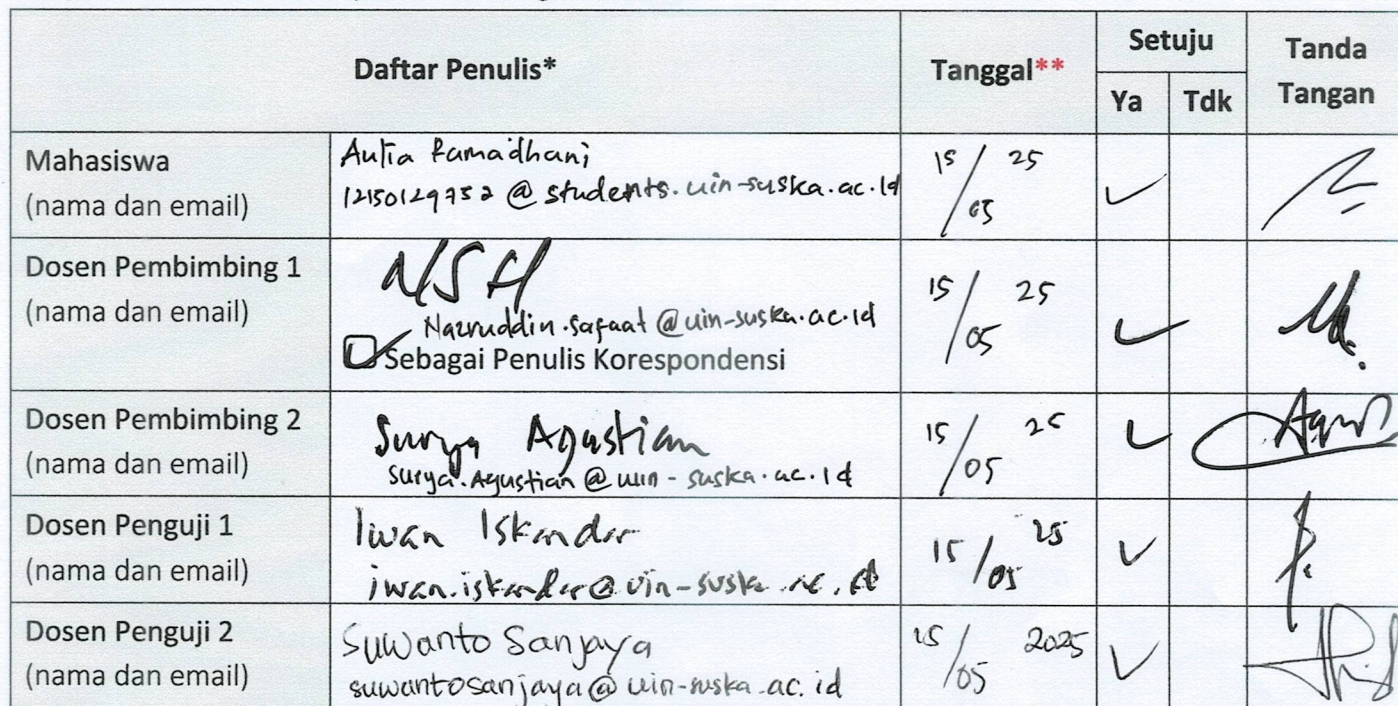 Daftar Penulis* Tanggal** Setuju Tanda Tangan
Ya Tdk
Mahasiswa
(nama dan email)
Aulia Ramadhani
12150129752@students.uin-suska.ac.id
15/05 25
Dosen Pembimbing 1
(nama dan email)
NSH
Nazruddin.safaat@uin-suska.ac.id
Sebagai Penulis Korespondensi
15/05 25
Dosen Pembimbing 2
(nama dan email)
Surya Agustian
surya.Agustian@uin-suska.ac.id
15/05 25
Dosen Penguji 1
(nama dan email)
Iwan Iskandar
iwan.iskandar@uin-suska.ac.id
15/05 25
Dosen Penguji 2
(nama dan email)
Suwanto Sanjaya
suwantosanjaya@uin-suska.ac.id
15/05 2025